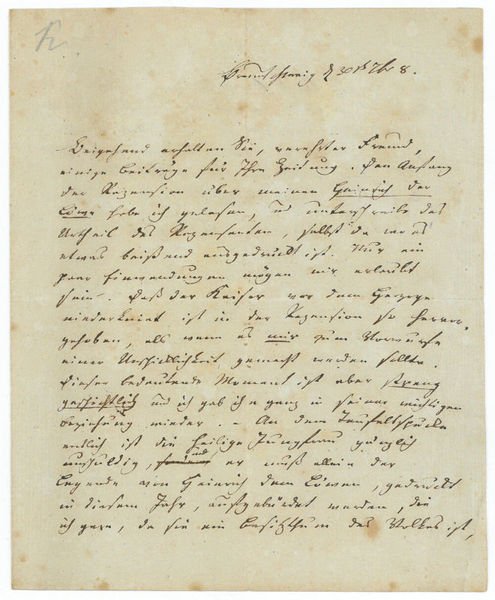 Braunschweig d 30st 7br 8.
Beigehend erhalten Sie, verehrter Freund,
einige Beiträge für Ihre Zeitung. Den Anfang
der Rezension über meinen Heinrich der
Löwe habe ich gelesen, und unterschreibe das
Urtheil des Rezensenten, selbst da wo es
etwas beißend ausgedrückt ist. Nur ein
paar Einwendungen mögen mir erlaubt
sein. Daß der Kaiser vor dem Herzoge
niederkniet ist in der Rezension so hervor-
gehoben, als wenn es mir zum Vorwurfe
einer Unschicklichkeit gemacht werden sollte.
Dieser bedeutende Moment ist aber streng
geschichtlich und ich gab ihn ganz in seiner wichtigen
Beziehung wieder. – An dem Teufelsspucke
endlich ist die heilige Jungfrau gänzlich
unschuldig, und er muß allein der
Legende von Heinrich dem Löwen, gedruckt
in diesem Jahr, aufgebürdet werden, die
ich gern, da sie ein Besitzthum des Volkes ist,